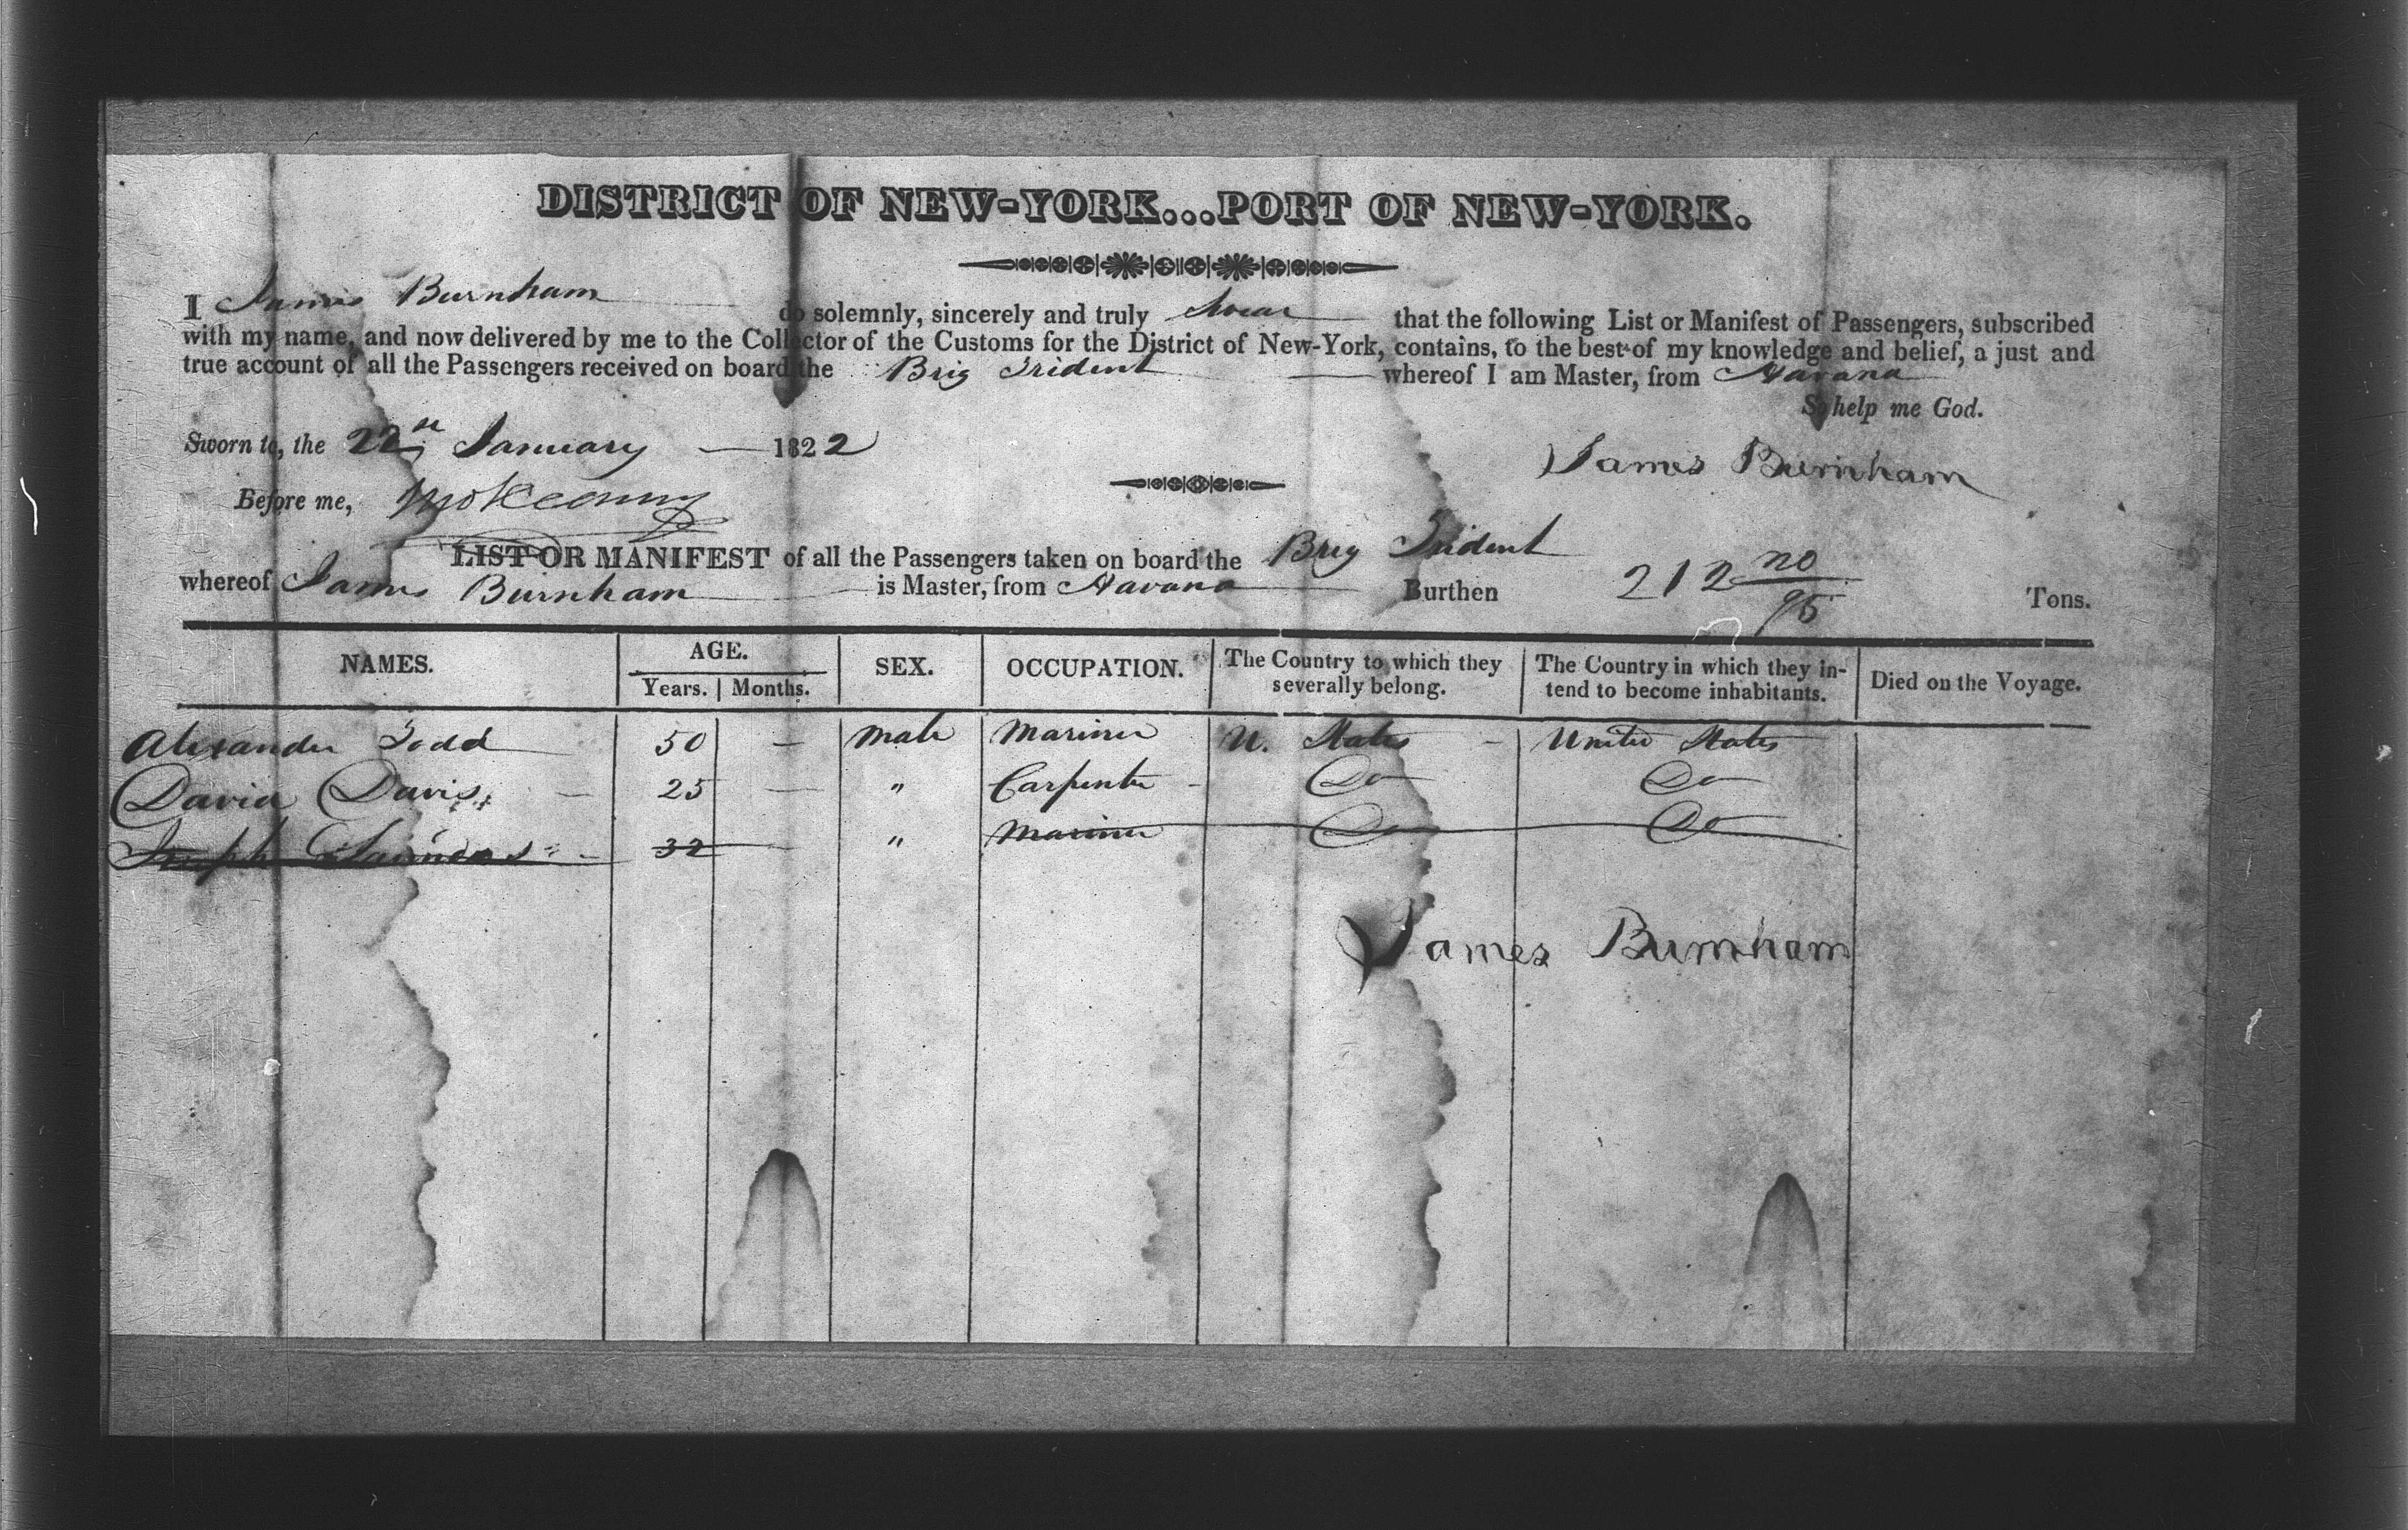 DISTRICT OF NEW-YORK...PORT OF NEW-YORK.
I James Burnham do solemnly, sincerely and truly swear that the following List or Manifest of Passengers, subscribed
with my name, and now delivered by me to the Collector of the Customs for the District of New-York, contains, to the best of my knowledge and belief, a just and
true account of all the Passengers received on board the Brig Trident whereof I am Master, from Havana
So help me God.
Sworn to, the 22 January 1822
James Burnham
Before me,
LIST OR MANIFEST of all the Passengers taken on board the Brig Trident
whereof James Burnham is Master, from Havana Burthen 212 no/95 Tons.
NAMES. AGE. SEX. OCCUPATION. The Country to which they severally belong. The Country in which they intend to become inhabitants. Died on the Voyage.
Years. Months.
Alexander Todd 50 — Male Mariner U. States — United States
David Davis — 25 — " Carpenter - Do Do
Joseph Saunders - 32 — " Mariner Do Do
James Burnham